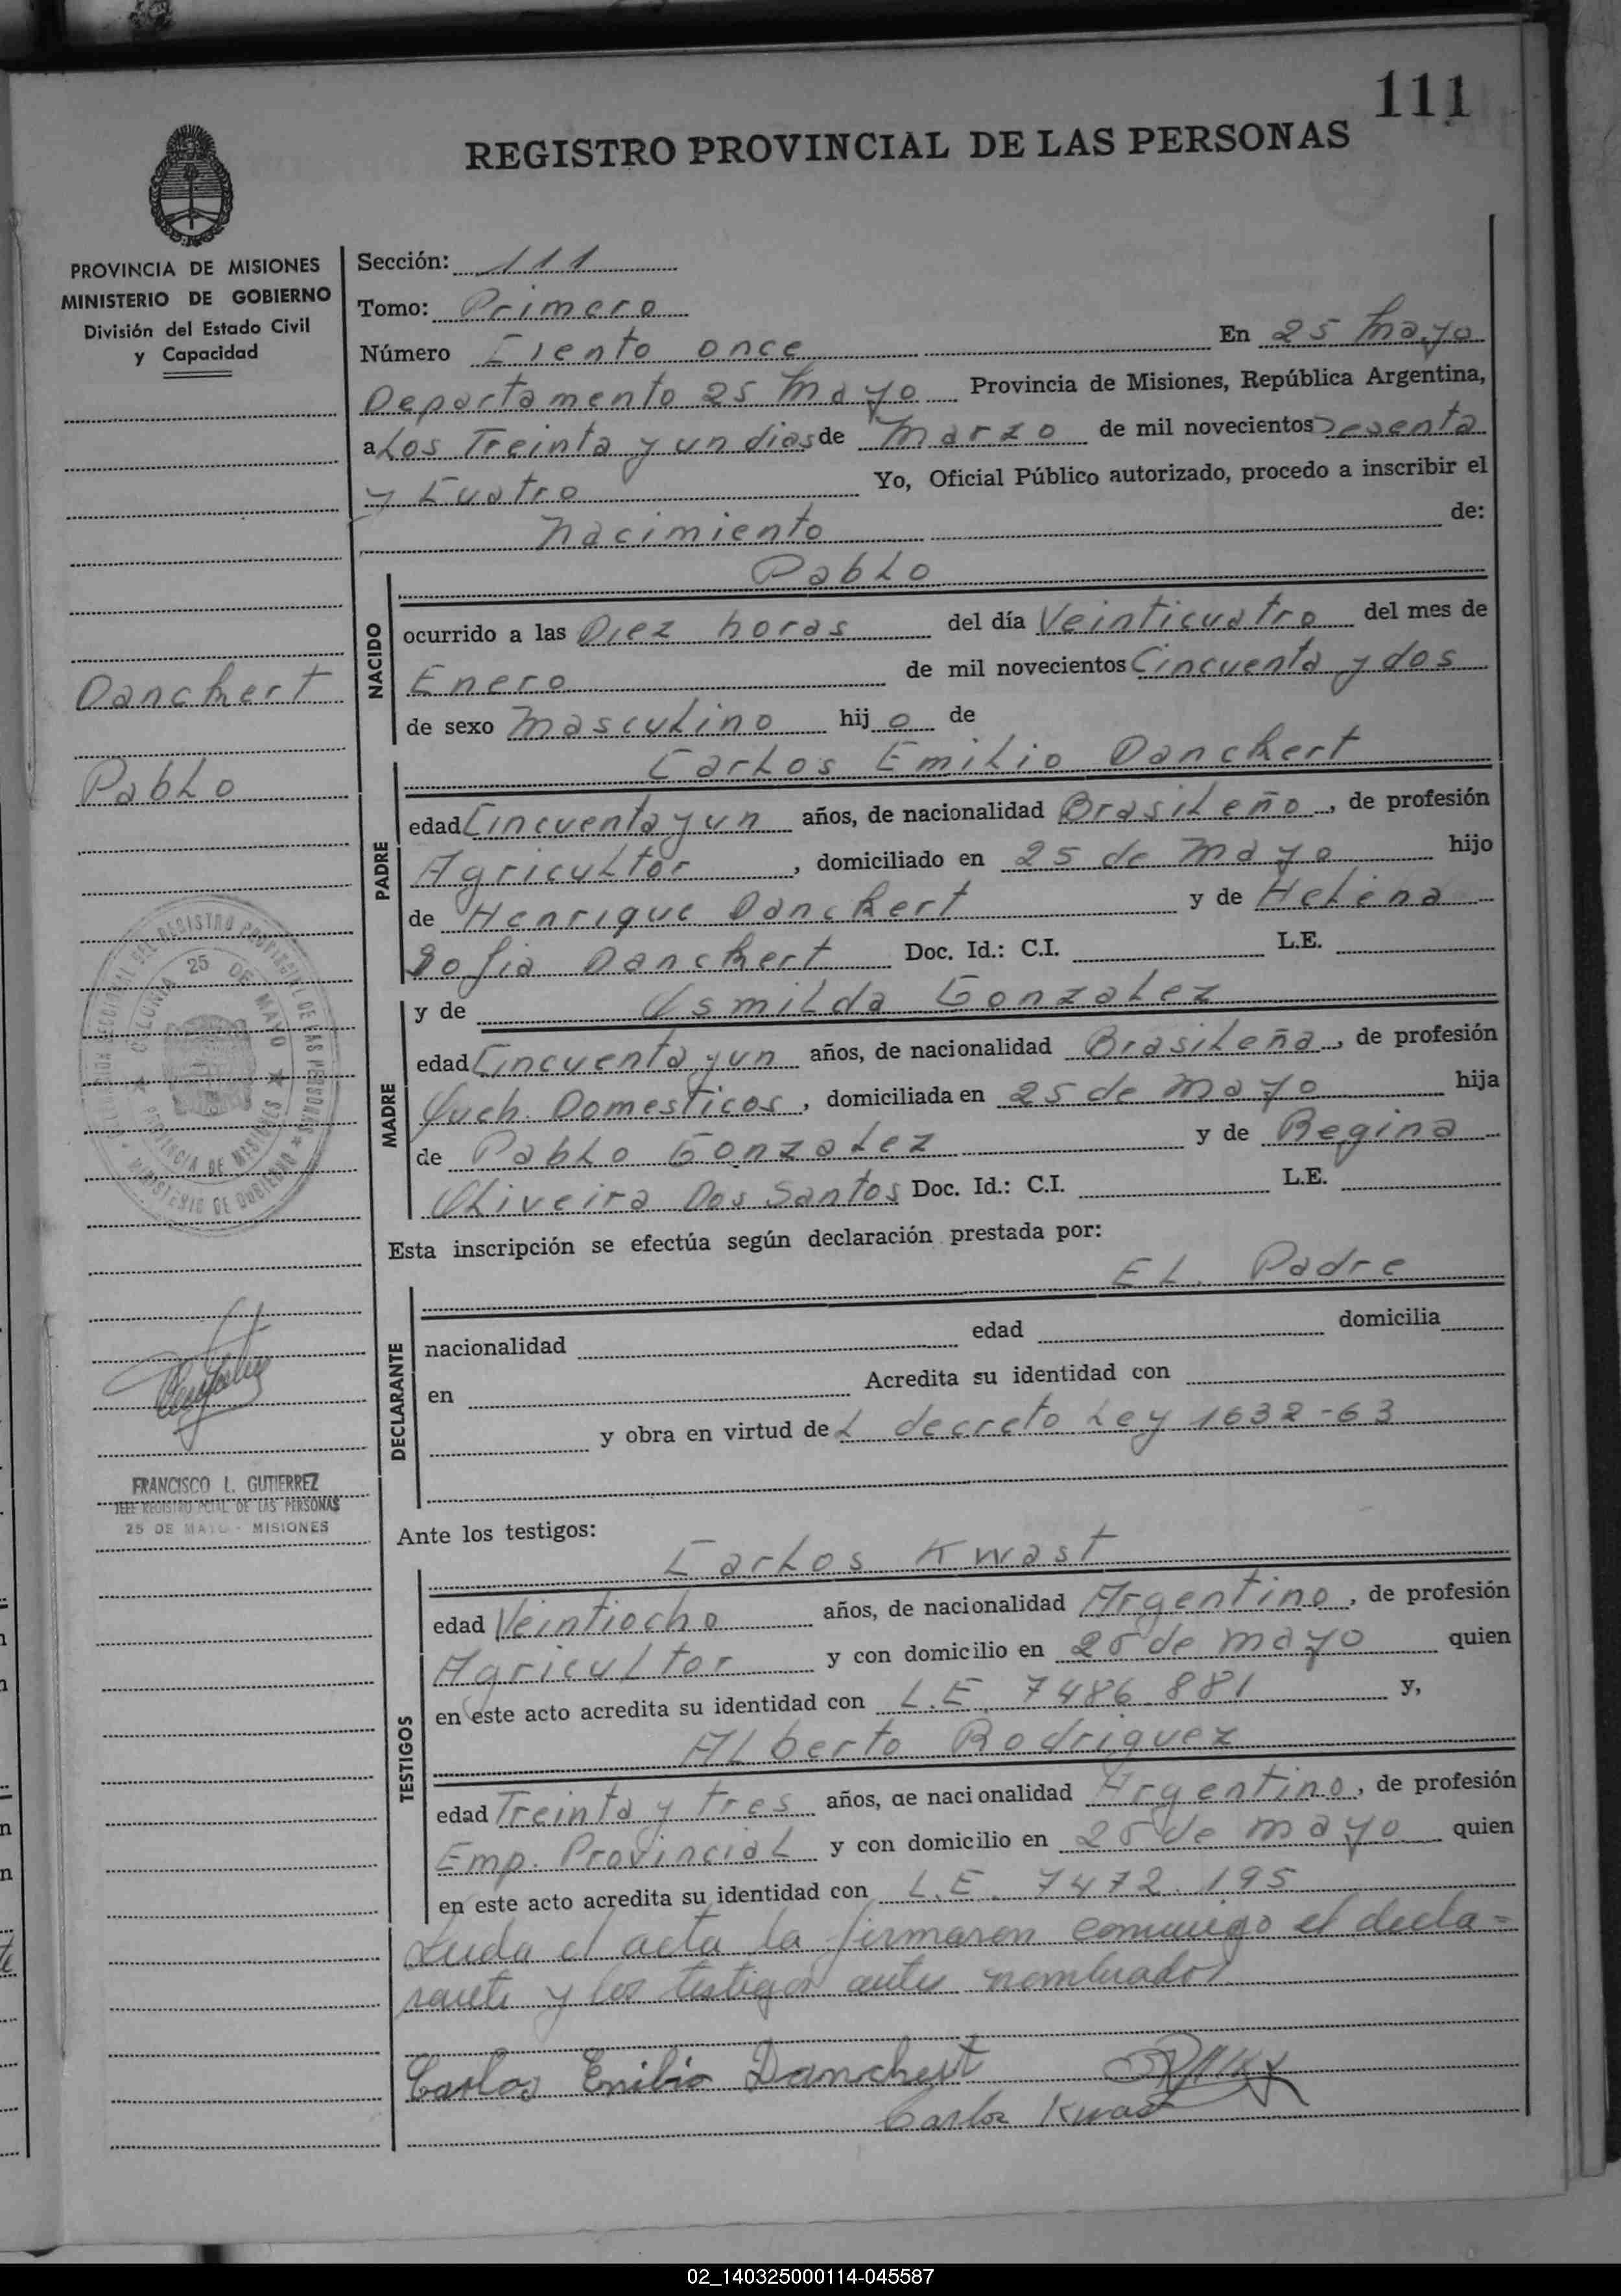 111
REGISTRO PROVINCIAL DE LAS PERSONAS
PROVINCIA DE MISIONES
MINISTERIO DE GOBIERNO
División del Estado Civil
y Capacidad
Danckert
Pablo
COLONIA 25 DE MAYO
PROVINCIA DE MISIONES
MINISTERIO DE GOBIERNO
FRANCISCO L. GUTIERREZ
JEFE REGISTRO PCIAL DE LAS PERSONAS
25 DE MAYO - MISIONES
Sección: 111
Tomo: Primero
Número Ciento once En 25 Mayo
Departamento 25 Mayo Provincia de Misiones, República Argentina,
a Los Treinta y un dias de Marzo de mil novecientos Sesenta
y Cuatro Yo, Oficial Público autorizado, procedo a inscribir el
Nacimiento de:
Pablo
NACIDO
ocurrido a las Diez horas del día Veinticuatro del mes de
Enero de mil novecientos Cincuenta y dos
de sexo Masculino hijo de
Carlos Emilio Danckert
PADRE
edad Cincuenta y un años, de nacionalidad Brasileño, de profesión
Agricultor, domiciliado en 25 de Mayo hijo
de Henrique Danckert y de Helena
Sofia Danckert Doc. Id.: C.I. L.E.
y de Osmilda Gonzalez
MADRE
edad Cincuenta y un años, de nacionalidad Brasileña, de profesión
Queh. Domesticos, domiciliada en 25 de Mayo hija
de Pablo Gonzalez y de Regina
Oliveira Dos Santos Doc. Id.: C.I. L.E.
Esta inscripción se efectúa según declaración prestada por:
EL. Padre
DECLARANTE
nacionalidad edad domicilia
en Acredita su identidad con
y obra en virtud deL decreto Ley 1632-63
Ante los testigos:
Carlos Kwast
TESTIGOS
edad Veintiocho años, de nacionalidad Argentino, de profesión
Agricultor y con domicilio en 25 de mayo quien
en este acto acredita su identidad con L.E. 7486.881 y,
ALberto Rodriguez
edad Treinta y tres años, de nacionalidad Argentino, de profesión
Emp. Provincial y con domicilio en 25 de mayo quien
en este acto acredita su identidad con L.E. 7472.195
Leida el acta la firmaron conmigo el decla=
rante y los testigos antes nombrados
Carlos Emilio Danckert
Carlos Kwast
02_140325000114-045587